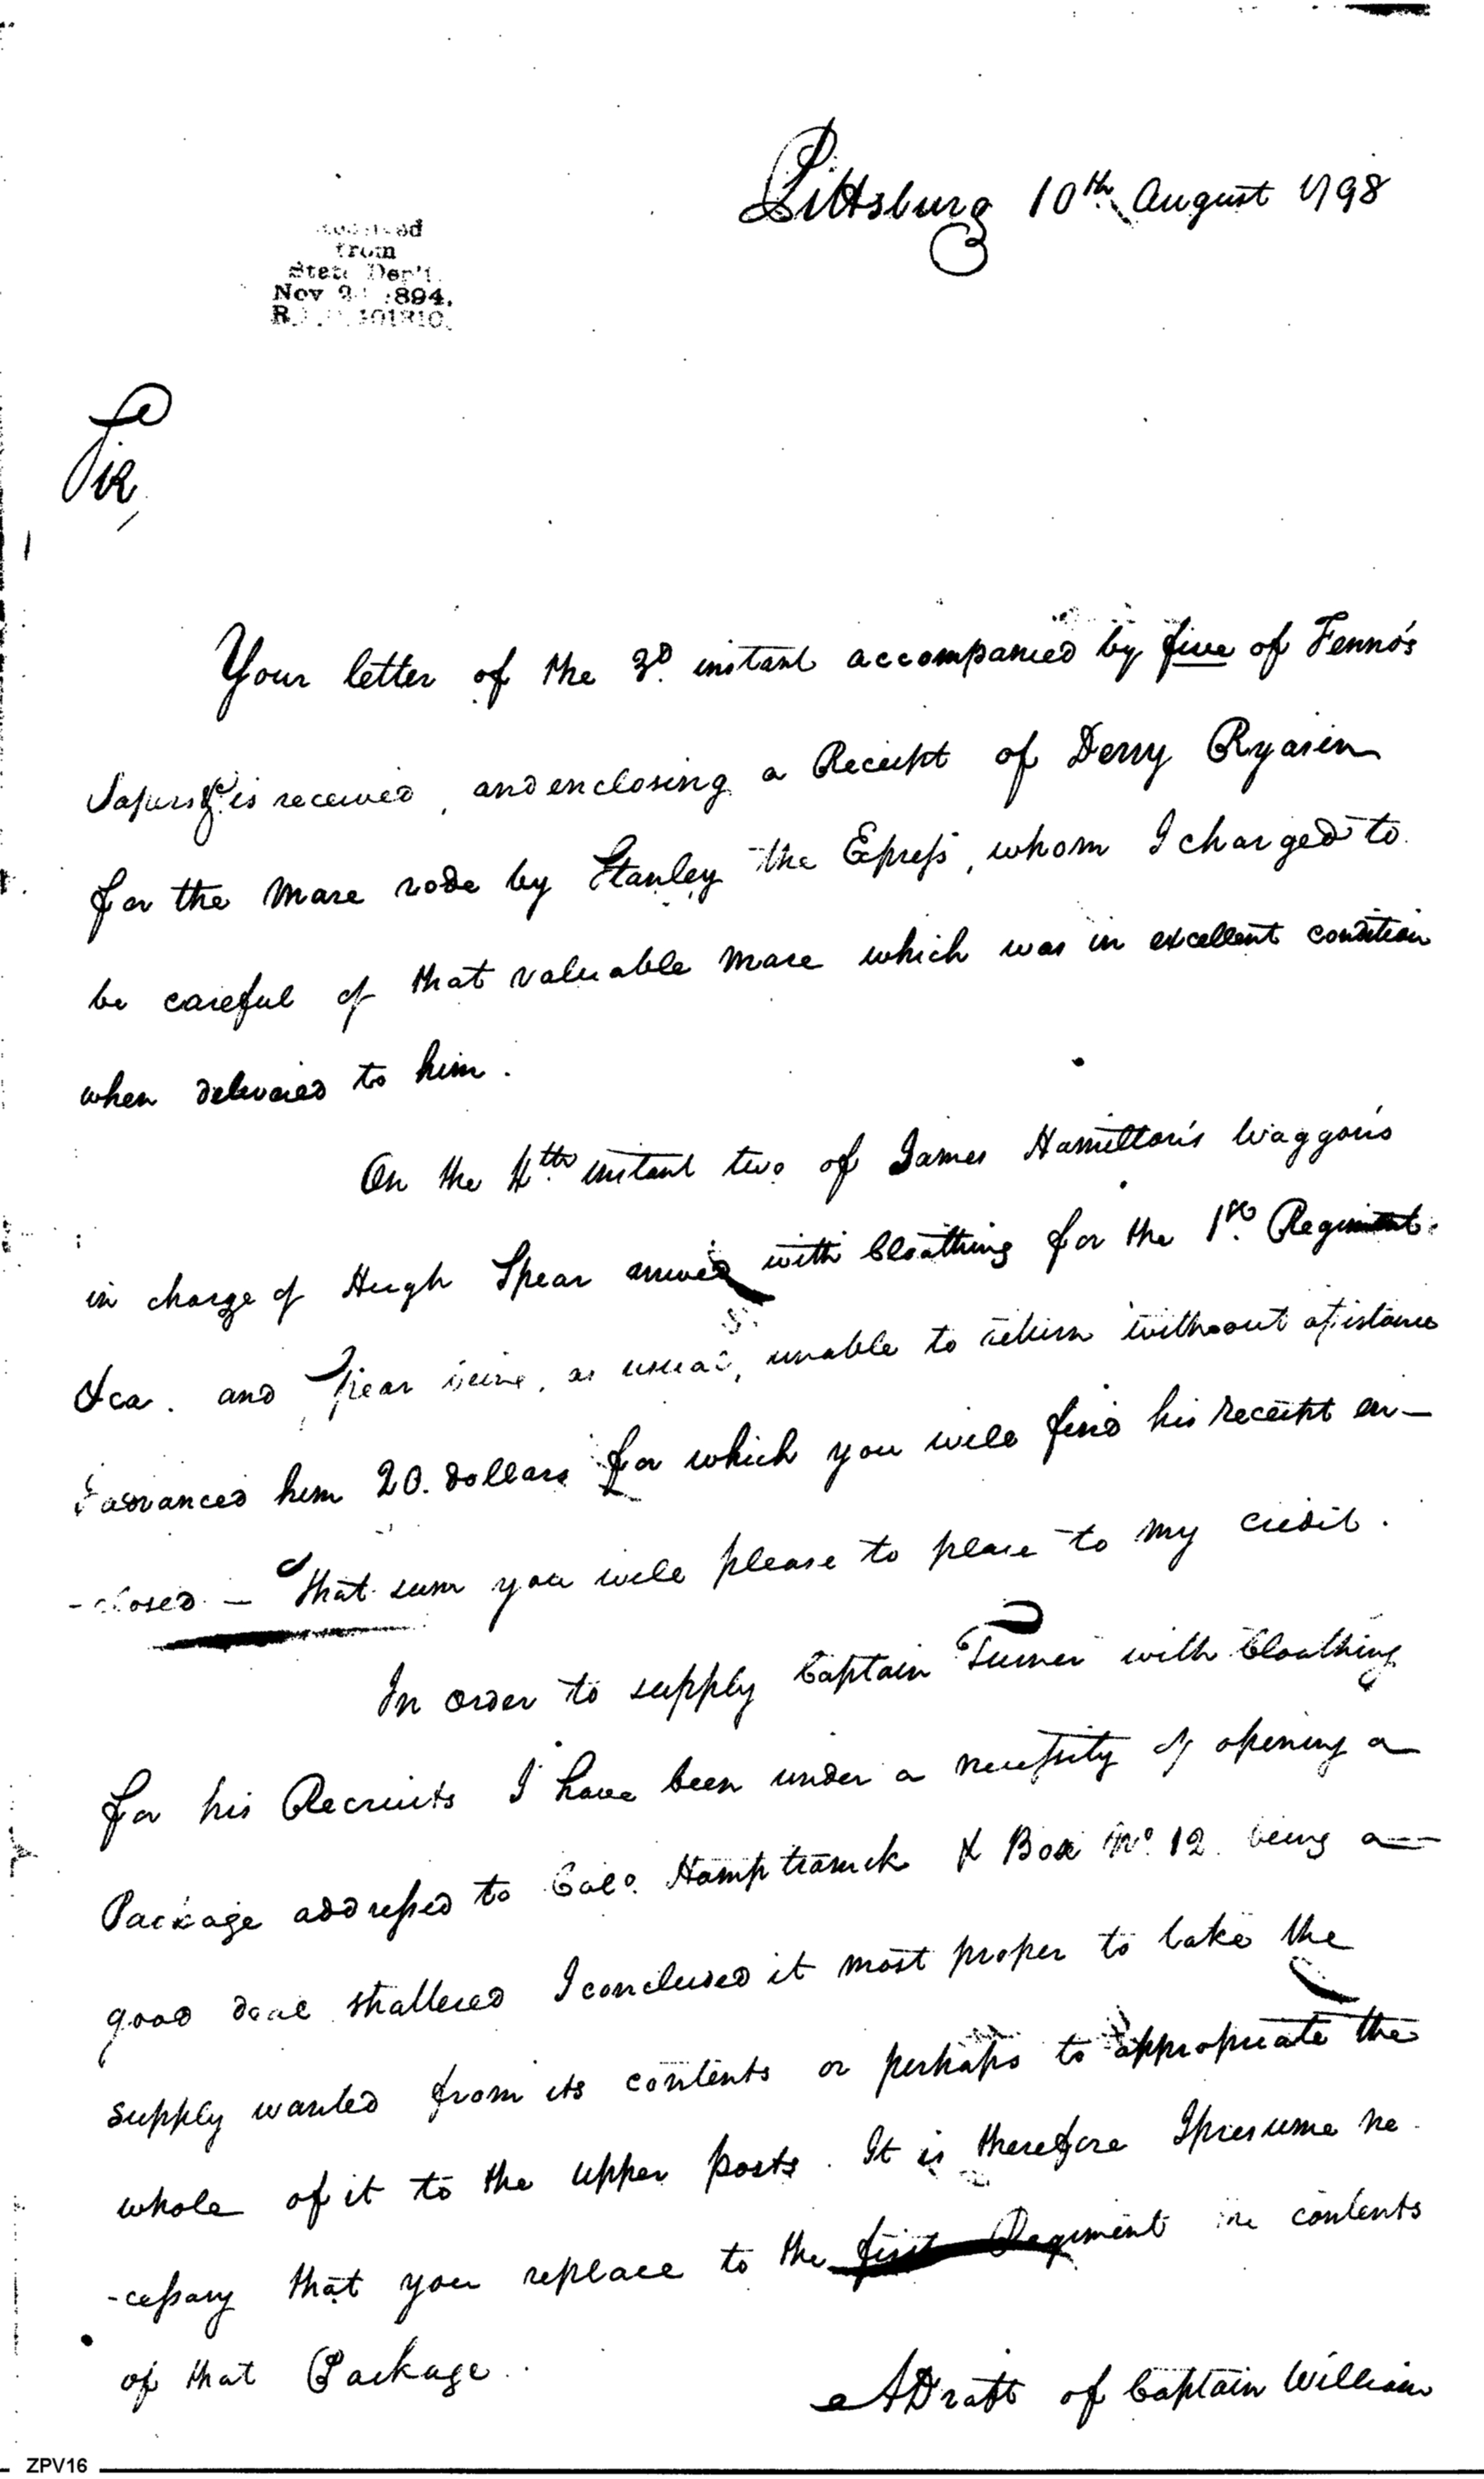 Pittsburg 10th August 1798
from
State Dep't.
Nov 894.
R. 101810.
Sir,
Your letter of the 3d. instant accompanied by five of Fenno's
Papers is received, and enclosing a Receipt of Derry Ryan
for the Mare rode by Stanley the Express, whom I charged to
be careful of that valuable Mare which was in excellent condition
when delivered to him.
On the 4th. instant two of James Hamilton's Waggons
in charge of Hugh Spear arrived with Cloathing for the 1st. Regiment.
&ca. and Spear being, as usual, unable to return without assistance
I advanced him 20. dollars for which you will find his receipt en—
-closed — That sum you will please to place to my credit.
In order to supply Captain Turner with Cloathing
for his Recruits I have been under a necessity of opening a
Package addressed to Colo. Hamptramck & Box No. 12 being a
good deal shattered I concluded it most proper to take the
supply wanted from its contents or perhaps to appropriate the
whole of it to the upper posts. It is therefore I presume ne
-cessary that you replace to the first Regiment the contents
of that Package.
A Draft of Captain William
ZPV16